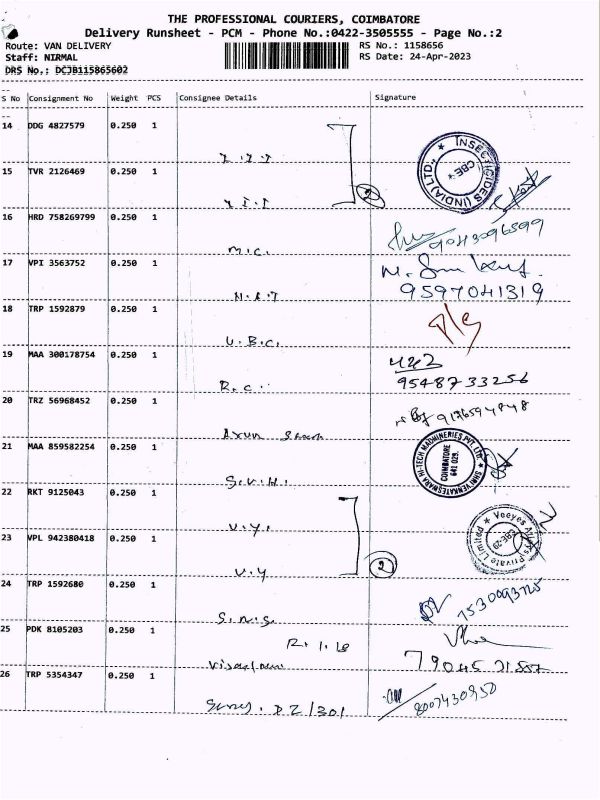 THE PROFESSIONAL COURIERS, COIMBATORE
Delivery Runsheet - PCM - Phone No.:0422-3505555 - Page No.:2
Route: VAN DELIVERY
RS No.: 1158656
Staff: NIRMAL
RS Date: 24-Apr-2023
DRS No.: DCJB115865602
S No Consignment No Weight PCS Consignee Details Signature
14 DDG 4827579 0.250 1
INSECTICIDES (INDIA) LTD., ★ CBE ★
15 TVR 2126469 0.250 1
2
16 HRD 758269799 0.250 1
M.C.
9043096599
17 VPI 3563752 0.250 1
9597041319
18 TRP 1592879 0.250 1
U.B.C.
19 MAA 300178754 0.250 1
R.C.
9548733256
20 TRZ 56968452 0.250 1
Arun
21 MAA 859582254 0.250 1
S.V.H.
SHRI VENKATESWARA HI-TECH MACHINERIES PVT. LTD. ★
COIMBATORE
641 029.
22 RKT 9125043 0.250 1
V.Y.
Veeyes Private Limited ★ CBE-29
23 VPL 942380418 0.250 1
V.Y
2
24 TRP 1592680 0.250 1
S.N.S.
25 PDK 8105203 0.250 1
26 TRP 5354347 0.250 1
DZ/301
8007430950